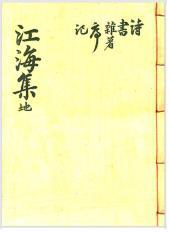 詩
書
雜著
序
記
江海集 地